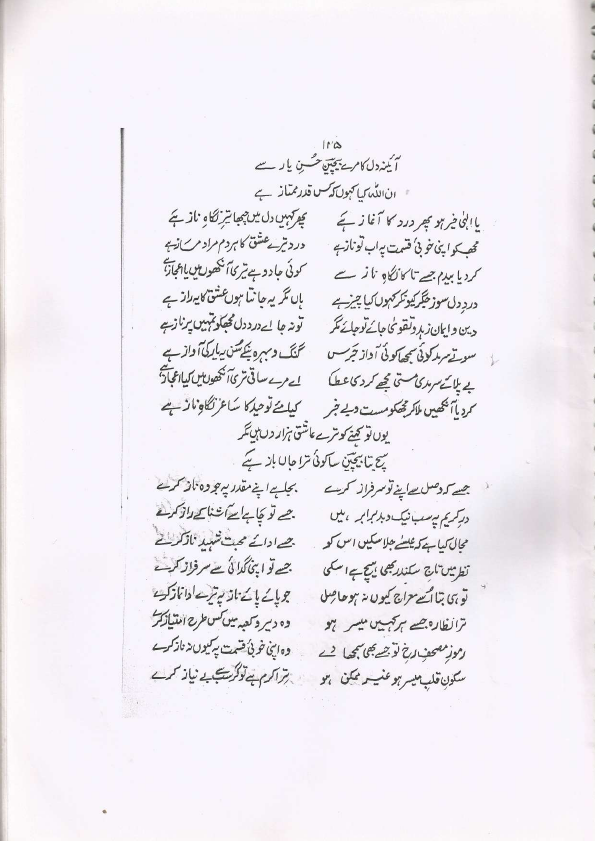 ۱۲۵
آئینہ دل کا مرے بیچین حسنِ یار سے
ان اللہ کیا کہوں کہ کس قدر ممتاز ہے
یا الٰہی خیر ہو پھر درد کا آغاز ہے پھر کہیں دل میں چبھا تیرِ نگاہِ ناز ہے
مجھکو اپنی خوبیٔ قسمت پہ اب تو ناز ہے درد تیرے عشق کا ہر دم مرا دمساز ہے
کر دیا بیدم جسے تاکا نگاہِ ناز سے کوئی جادو ہے تری آنکھوں میں یا اعجاز ہے
دردِ دل سوزِ جگر کیونکر کہوں کیا چیز ہے ہاں مگر یہ جانتا ہوں عشق کا یہ راز ہے
دین و ایمان زہد و تقویٰ جائے تو جائے مگر تو نہ جا اے دردِ دل مجھکو تمہیں پر ناز ہے
سوتے سرمد کوئی سمجھا کوئی آواز جرس گنگ و بہرہ بنکے سُن یہ یار کی آواز ہے
بے پلائے سرمدی مستی مجھے کر دی عطا اے مرے ساقی تری آنکھوں میں کیا اعجاز ہے
کر دیا آنکھیں ملا کر مجھکو مست و بے خبر کیا مئے توحید کا ساغر نگاہِ ناز ہے
یوں تو کہنے کو ترے عاشق ہزاروں ہیں مگر
سچ بتا بیچین سا کوئی ترا جاں باز ہے
جسے کہ وصل سے اپنے تو سرفراز کرے بجا ہے اپنے مقدر پہ جو وہ ناز کرے
درِ کریم پہ سب نیک و بد برابر ہیں جسے تو چاہے اسے آشنائے راز کرے
مجال کیا ہے کہ عیسےٰ جلا سکیں اس کو جسے ادائے محبت شہیدِ ناز کرے
نظر میں تاجِ سکندر بھی ہیچ ہے اسکی جسے تو اپنی گدائی سے سرفراز کرے
تو ہی بتا اُسے معراج کیوں نہ ہو حاصل جو پائے پائے ناز پہ تیرے ادا نماز کرے
ترا نظارہ جسے ہر کہیں میسر ہو وہ دیر و کعبہ میں کس طرح امتیاز کرے
رموزِ مصحفِ رخ تو جسے بھی سمجھا دے وہ اپنی خوبیٔ قسمت پہ کیوں نہ ناز کرے
سکونِ قلب میسر ہو غیر ممکن ہو ترا کرم ہے تو گر سب سے بے نیاز کرے